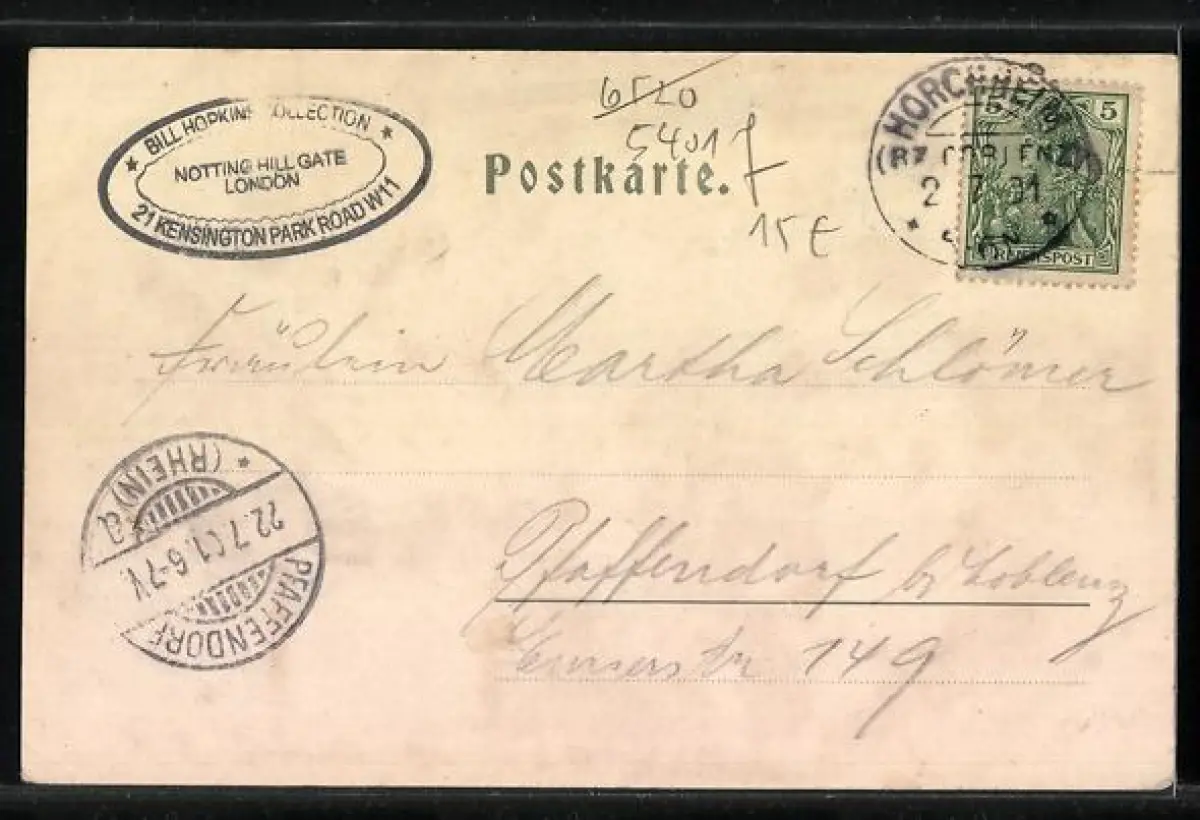 BILL HOPKINS COLLECTION
NOTTING HILL GATE
LONDON
21 KENSINGTON PARK ROAD W11
6520
5401
15 £
Postkarte.
HORCHHEIM
(BZ. COBLENZ)
7 01
5
REICHSPOST
Fräulein Martha Schlömer
(RHEIN) a
22.7.01.6-7V.
PFAFFENDORF
Pfaffendorf b/ Coblenz
Emserstr 149